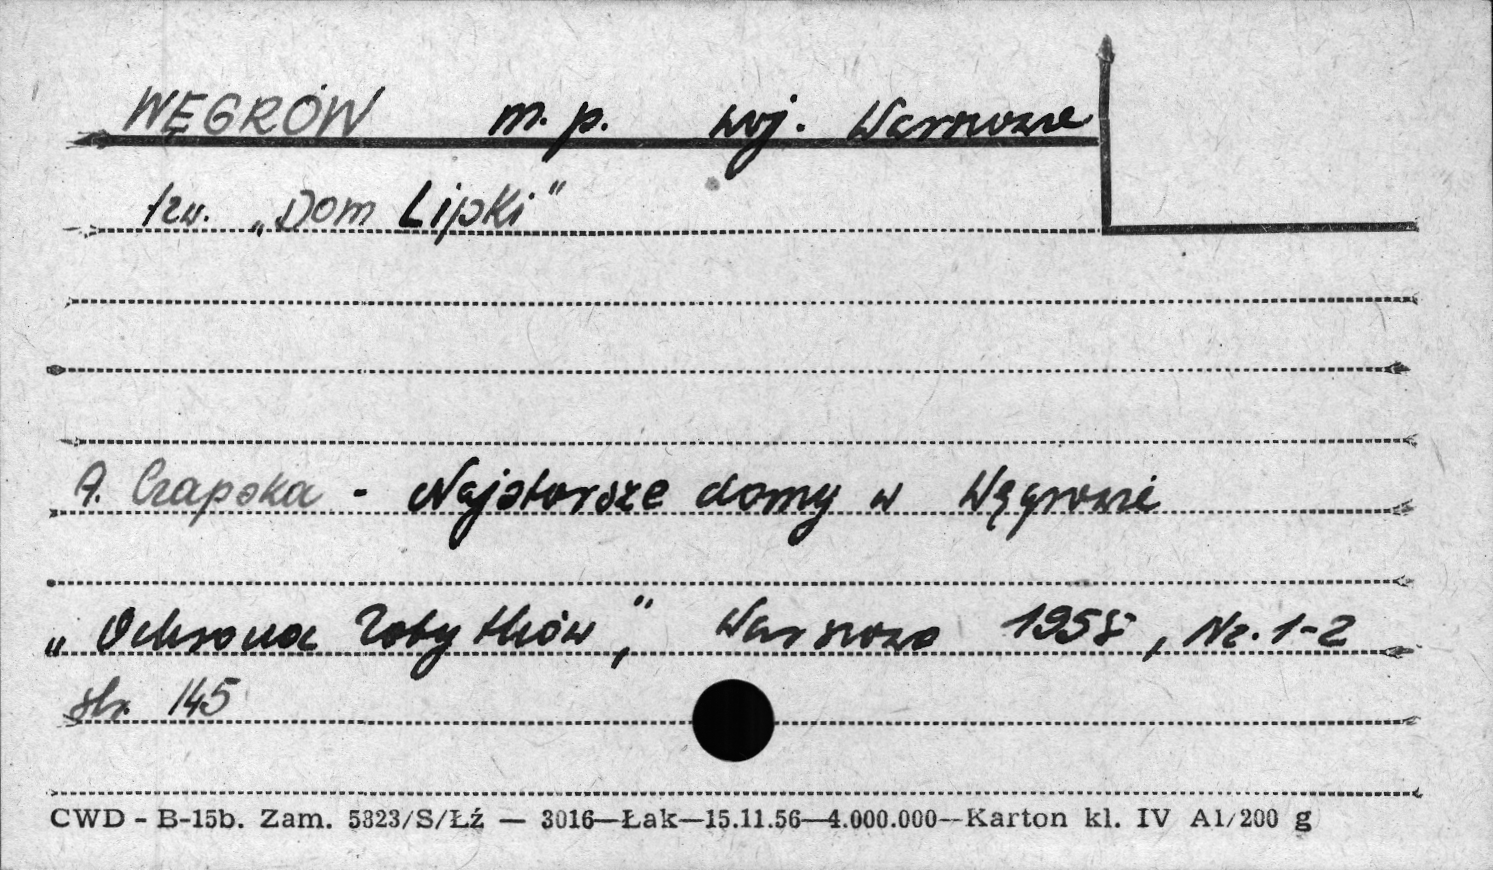 WĘGRÓW m. p. woj. Warszawa
tzw. „Dom Lipki"
A. Czapska - Najstarsze domy w Węgrowie
„Ochrona Zabytków," Warszawa 1958, Nr. 1-2
str. 145
CWD - B-15b. Zam. 5323/S/Łź — 3016—Łak—15.11.56—4.000.000—Karton kl. IV A1/200 g